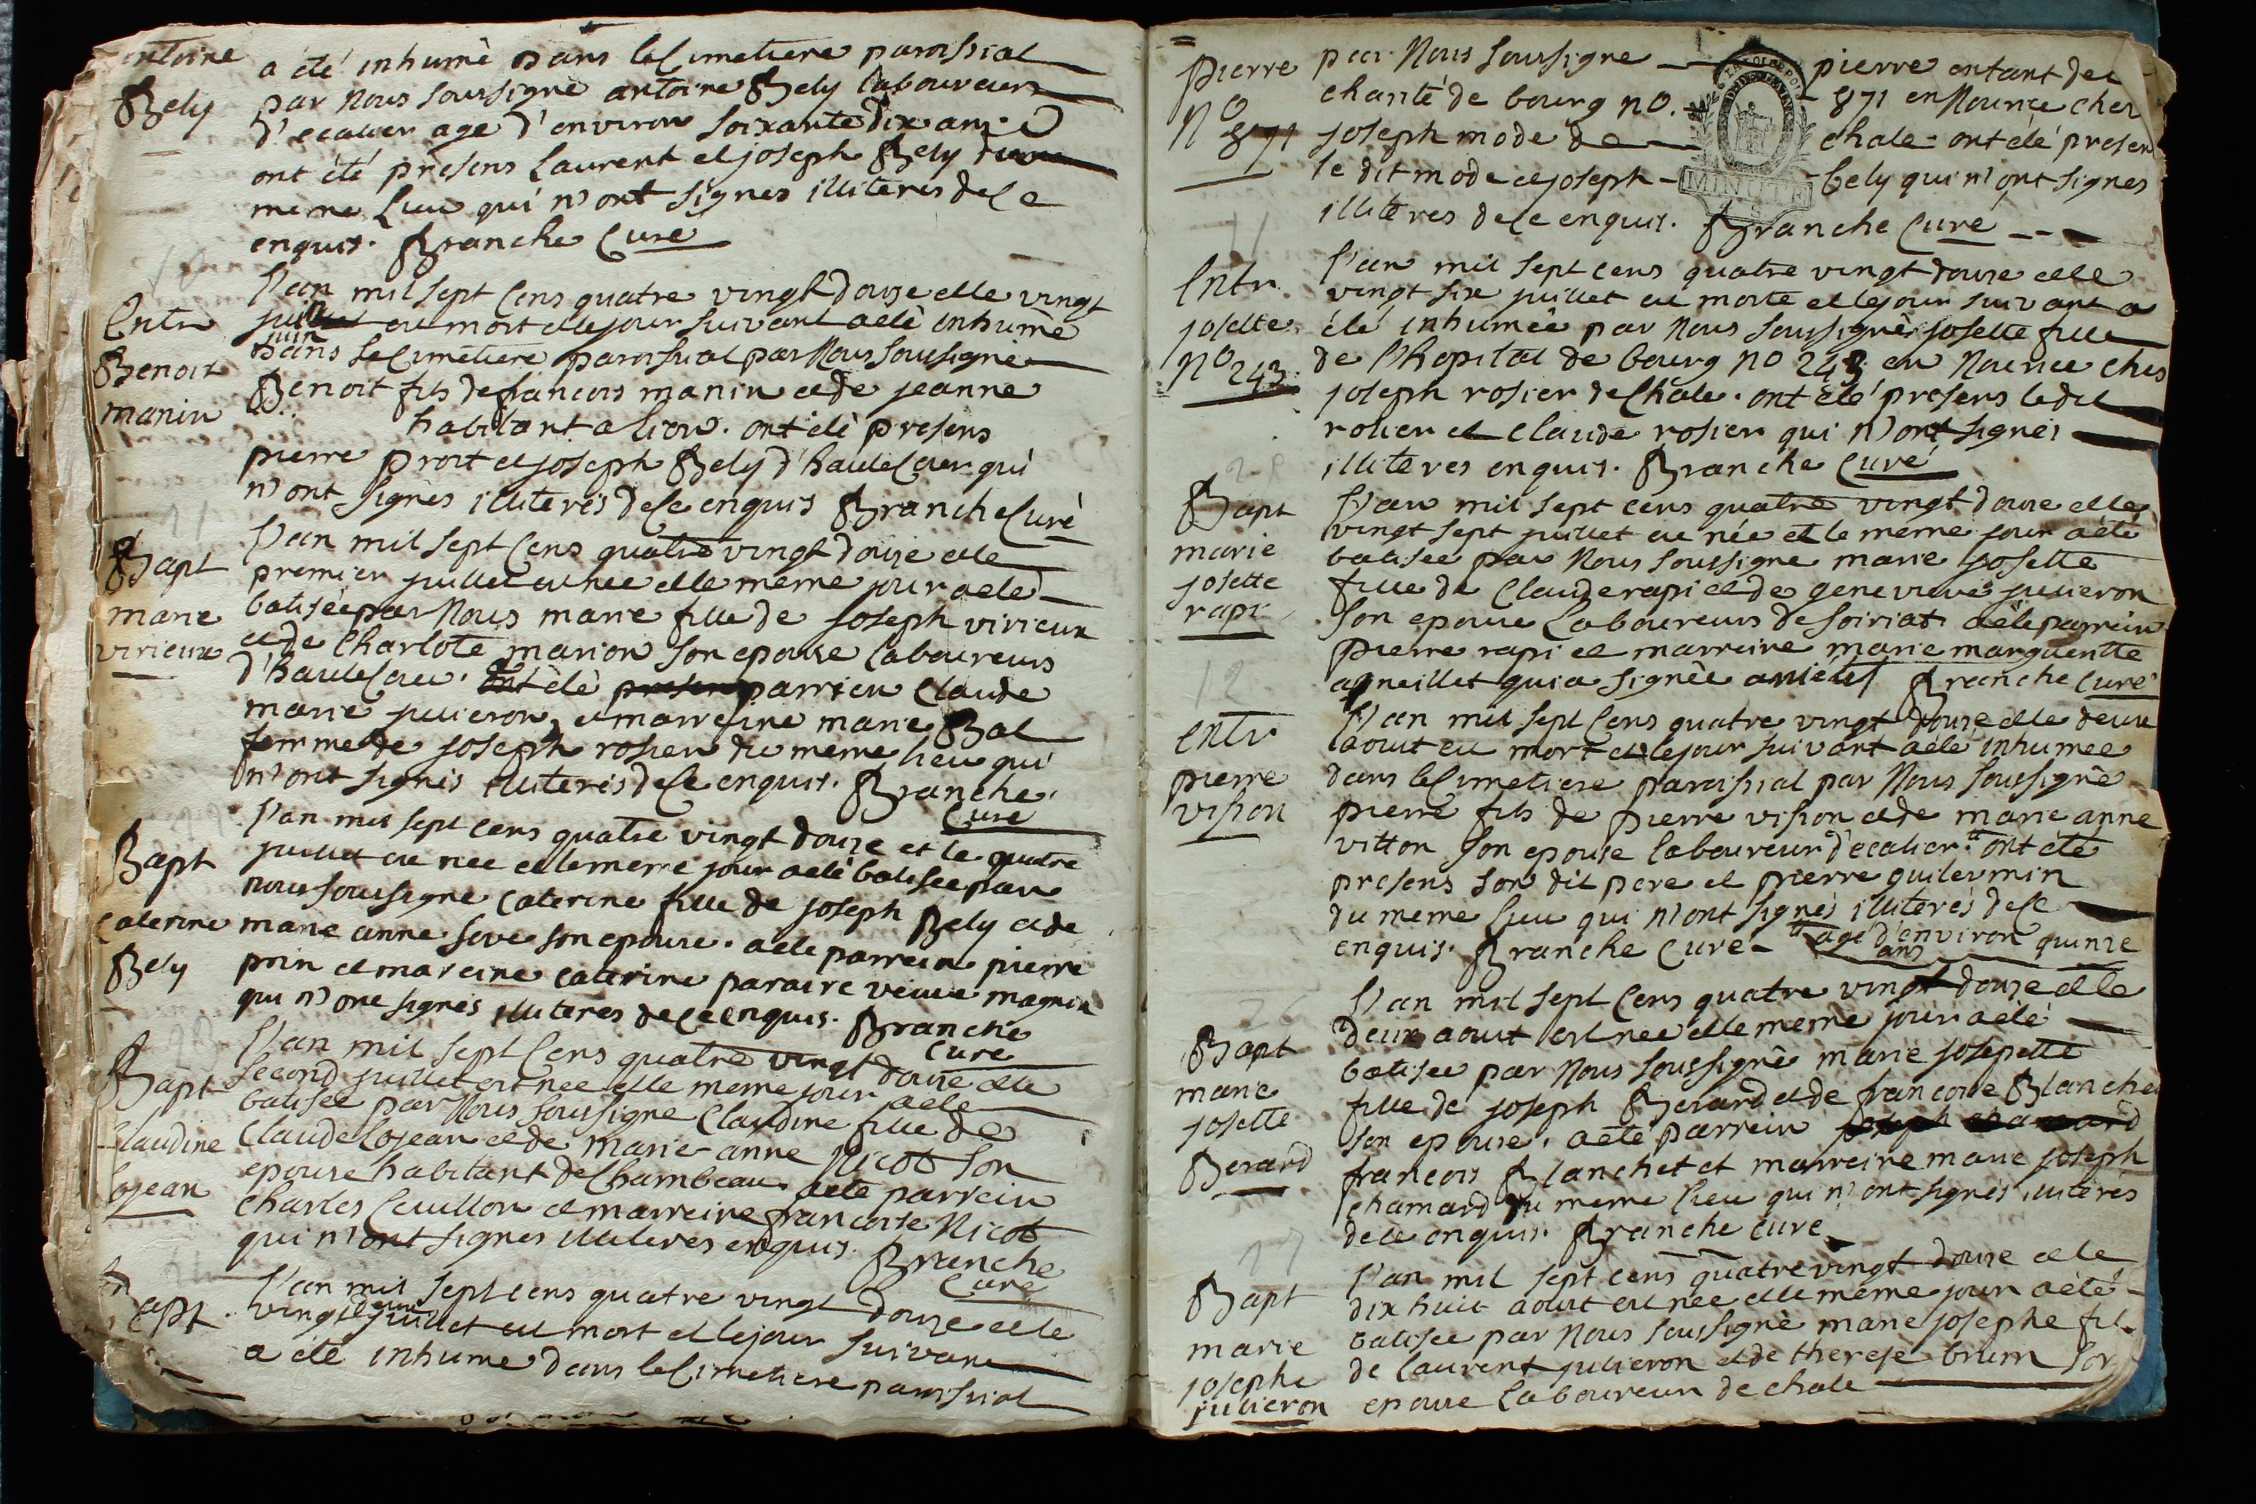 antoine
Bely
a été inhumè dans le Cimetiere paroissial
par Nous soussignè antoine Bely laboureur
d'ecalier agé d'environ soixante dix ans.
ont été presens Laurent et joseph Bely du
meme Lieu qui n'ont signes illiteres de Ce
enquis. Branche Curé
Entr
Benoit
manin
l'an mil sept Cens quatre vingt douze et le vingt
juin est mort et le jour suivant a eté inhumè
dans le Cimetiere paroissial par Nous soussignè
Benoit fils de francois manin et de jeanne
habitant a lion. ont été presens
pierre prost et joseph Bely d'hauteCour qui
n'ont signès illiteres de Ce enquis Branche Curè
Bapt
marie
virieux
l'an mil sept Cens quatre vingt douze et le
premier juillet est nee et le meme jour a eté
batisée par Nous marie fille de joseph virieux
et de Charlote marion son epouse laboureurs
d'hauteCour. a été parrien Claude
marie juvieron et marreine marie Bal
femme de joseph rosier du meme lieu qui
n'ont signés illiteres de Ce enquis. Branche
Curé
Bapt
Caterine
Bely
l'an mil sept cens quatre vingt douze et le quatre
juillet est nee et le meme jour a eté batisee par
nous soussigne Caterine fille de joseph Bely et de
marie anne seve son epouse. a ete parrein pierre
prin et mareine caterine paraire veuve magnin
qui n'ont signés illiteres de Ce enquis. Branche
Curé
Bapt
Claudine
lojean
l'an mil sept Cens quatre vingt douze et le
second juillet est nee et le meme jour a ete
batisee par Nous soussigne Claudine fille de
Claude lojean et de marie anne Nicot son
epouse habitant de Chambeau. a ete parrein
Charles Cuillon et marreine francoise Nicot
qui n'ont signes illiteres enquis. Branche
Curé
Bapt
l'an mil sept cens quatre vingt douze et le
vingt deux juillet est mort et le jour suivant
a eté inhume dans le Cimetiere paroissial
pierre
No
871
par Nous soussigne pierre enfant de
charité de bourg no. 871 en Nource ches
joseph mode de chale. ont eté presen
le dit mode et joseph bely qui n'ont signes
illiteres de Ce enquis. Branche Curé
MINUTE
Entr
josette
No 243
l'an mil sept cens quatre vingt douze et le
vingt six juillet est morte et le jour suivant a
été inhumée par Nous soussignè josette fille
de l'hopital de bourg no 243 en Nource ches
joseph rosier de Chale. ont été presens le dit
rosier et Claude rosier qui n'ont signès
illiteres enquis. Branche Curé
Bapt
marie
josette
rapi
l'an mil sept cens quatre vingt douze et le
vingt sept juillet est née et le meme jour a été
batisee par Nous soussigne marie josette
fille de Claude rapi et de genevieve juvieron
son epouse laboureurs de soiriat. a été parrein
pierre rapi et marreine marie marguerite
qui a signée Branche Curé
entr
pierre
vision
l'an mil sept Cens quatre vingt douze et le deux
aout est mort et le jour suivant a ete inhumee
dans le Cimetiere paroissial par Nous soussignè
pierre fils de pierre vision et de marie anne
vitton son epouse laboureur d'ecalier. ont été
presens son dit pere et pierre guilermin
du meme lieu qui n'ont signès illiterès de Ce
enquis. Branche Cure agé d'environ quinze
ans
Bapt
marie
josette
Berard
l'an mil sept Cens quatre vingt douze et le
deux aout est nee et le meme jour a eté
batisee par Nous soussigné marie josepette
fille de joseph Berard et de francoise Blanchet
son epouse. a eté parrein
francois Blanchet et marreine marie joseph
chamard du meme lieu qui n'ont signés illiterés
de Ce enquis. Branche Curé
Bapt
marie
josephe
juvieron
l'an mil sept cens quatre vingt douze et le
dix huit aout est nee et le meme jour a été
batisee par Nous soussignè marie josephe fil
de laurent juvieron et de therese brun son
epouse laboureur de chale